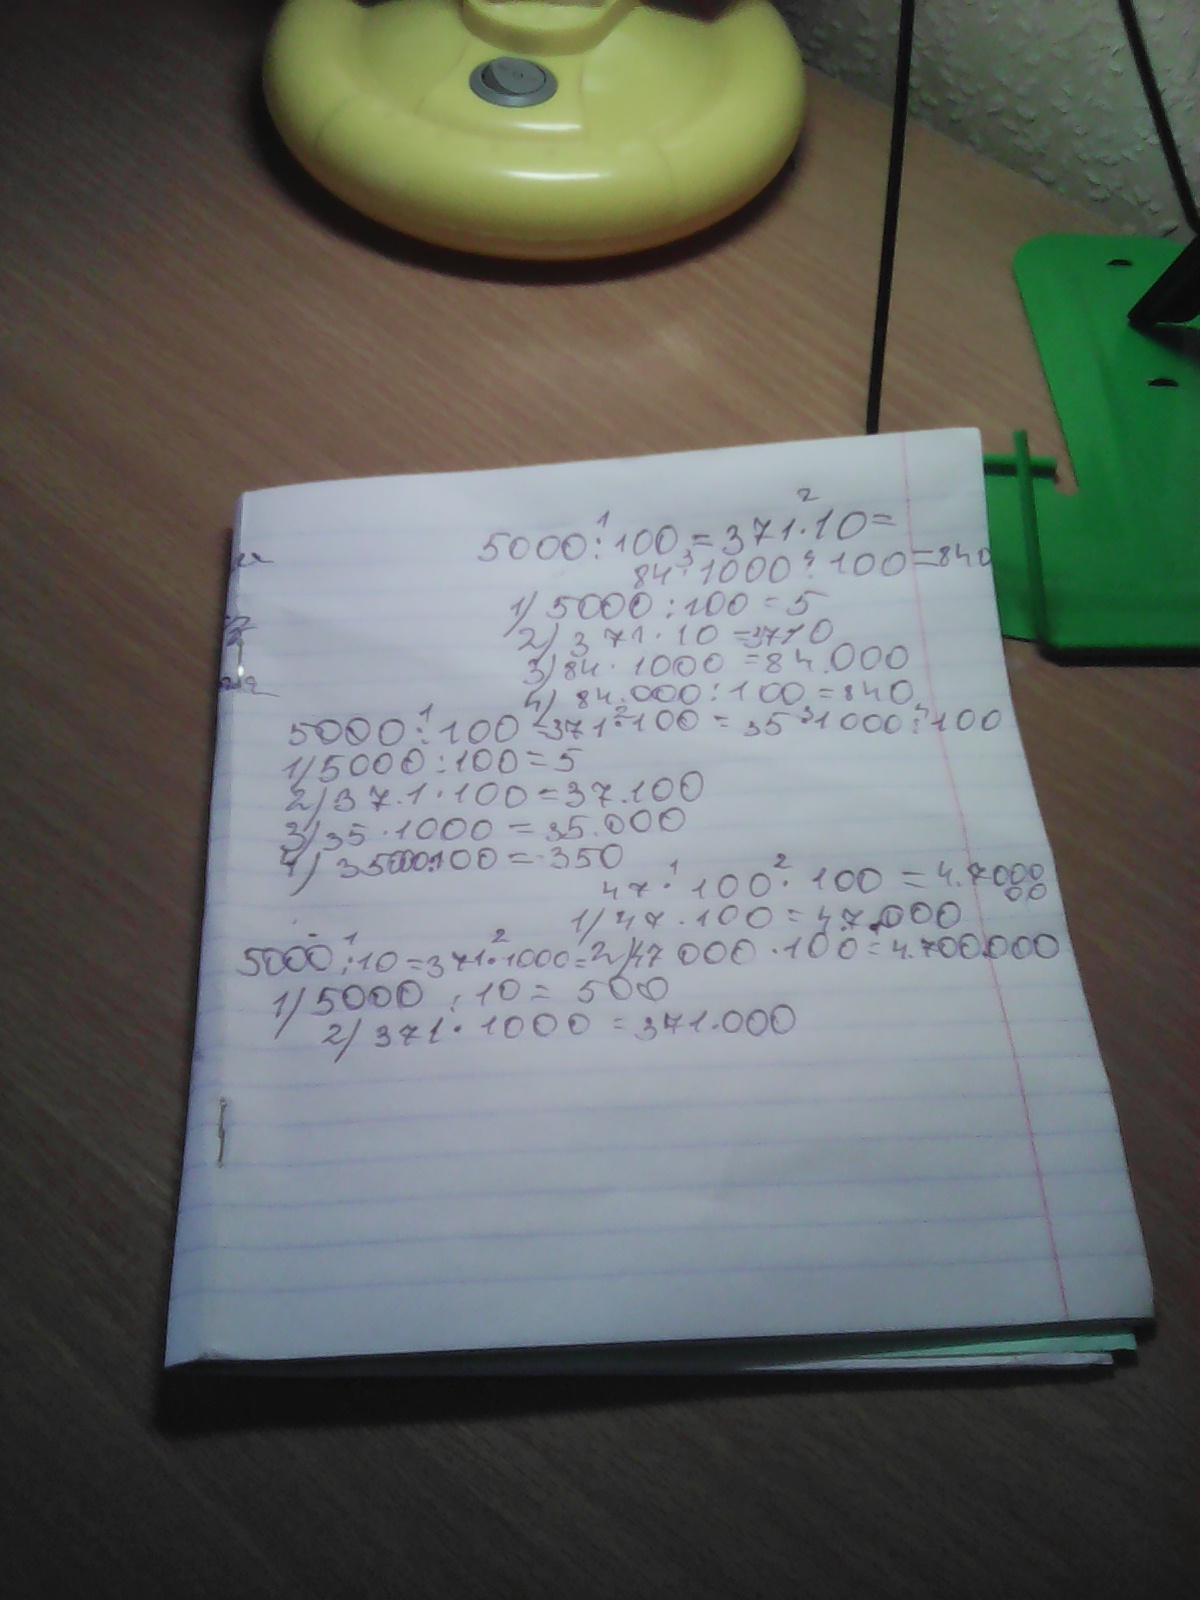 5000 : 100 = 371 · 10 =
84 · 1000 : 100 = 840
1) 5000 : 100 = 5
2) 371 · 10 = 3710
3) 84 · 1000 = 84.000
4) 84.000 : 100 = 840
5000 : 100 = 371 · 100 = 35 · 1000 : 100
1) 5000 : 100 = 5
2) 37.1 · 100 = 37.100
3) 35 · 1000 = 35.000
4) 35000:100 = 350
47 · 100 · 100 = 4.7000 00
1) 47 · 100 = 47.000
5000 : 10 = 371 · 1000 = 2) 47 000 · 100 = 4.700.000
1) 5000 : 10 = 500
2) 371 · 1000 = 371.000